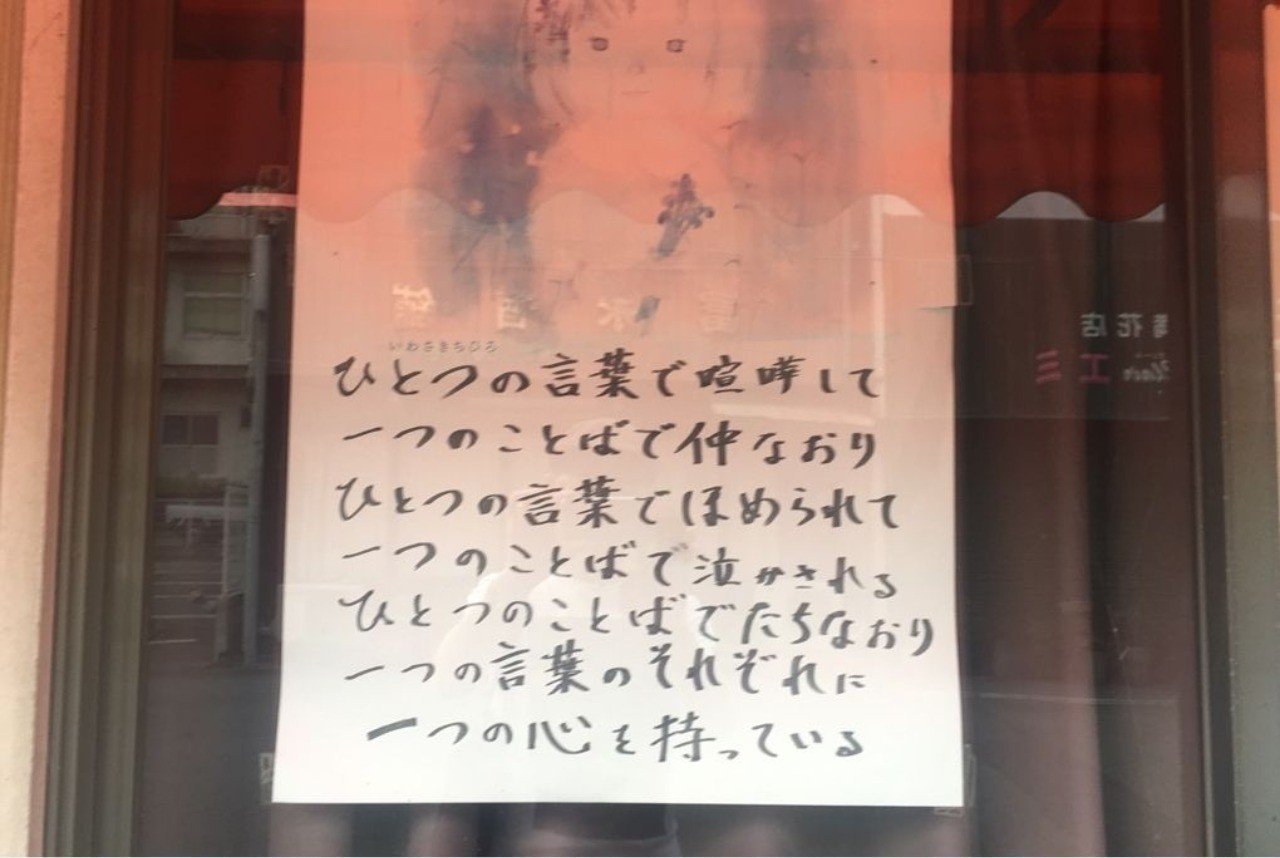 いわさきちひろ
ひとつの言葉で喧嘩して
一つのことばで仲なおり
ひとつの言葉でほめられて
一つのことばで泣かされる
ひとつのことばでたちなおり
一つの言葉のそれぞれに
一つの心を持っている
花店